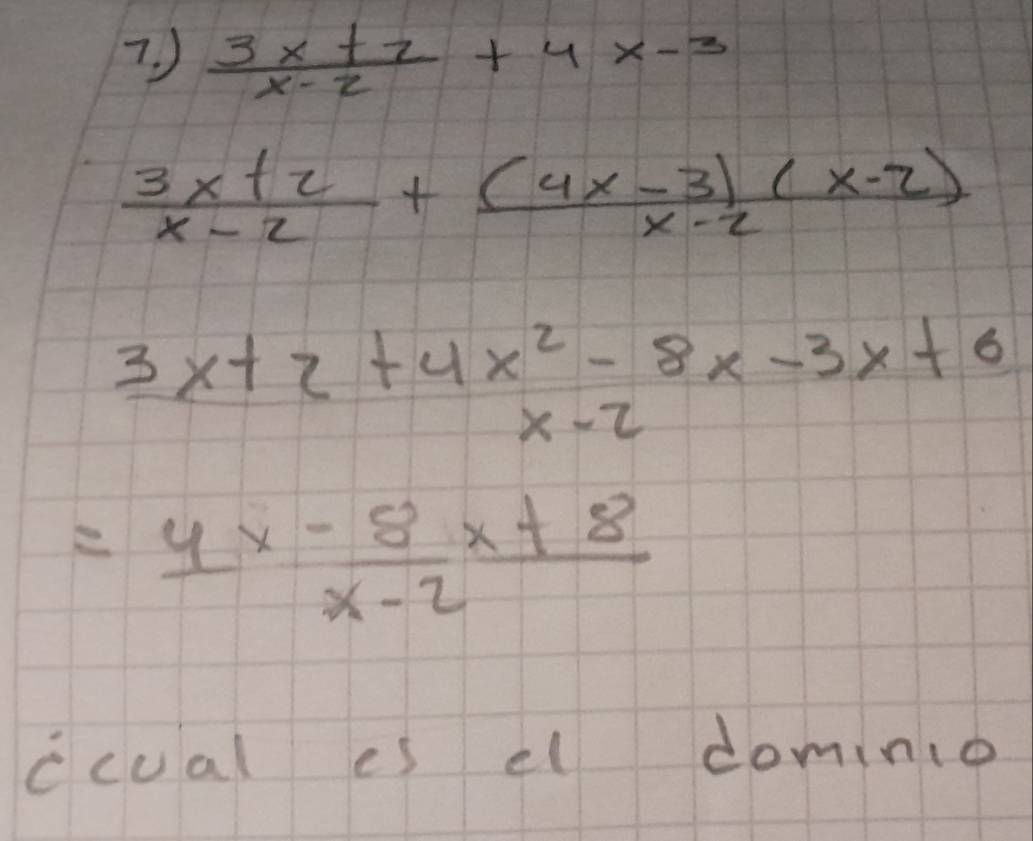 7.) (3x+2)/(x-2) + 4x-3
(3x+2)/(x-2) + ((4x-3)(x-2))/(x-2)
(3x+2+4x²-8x-3x+6)/(x-2)
= (4x-8x+8)/(x-2)
¿cual es el dominio